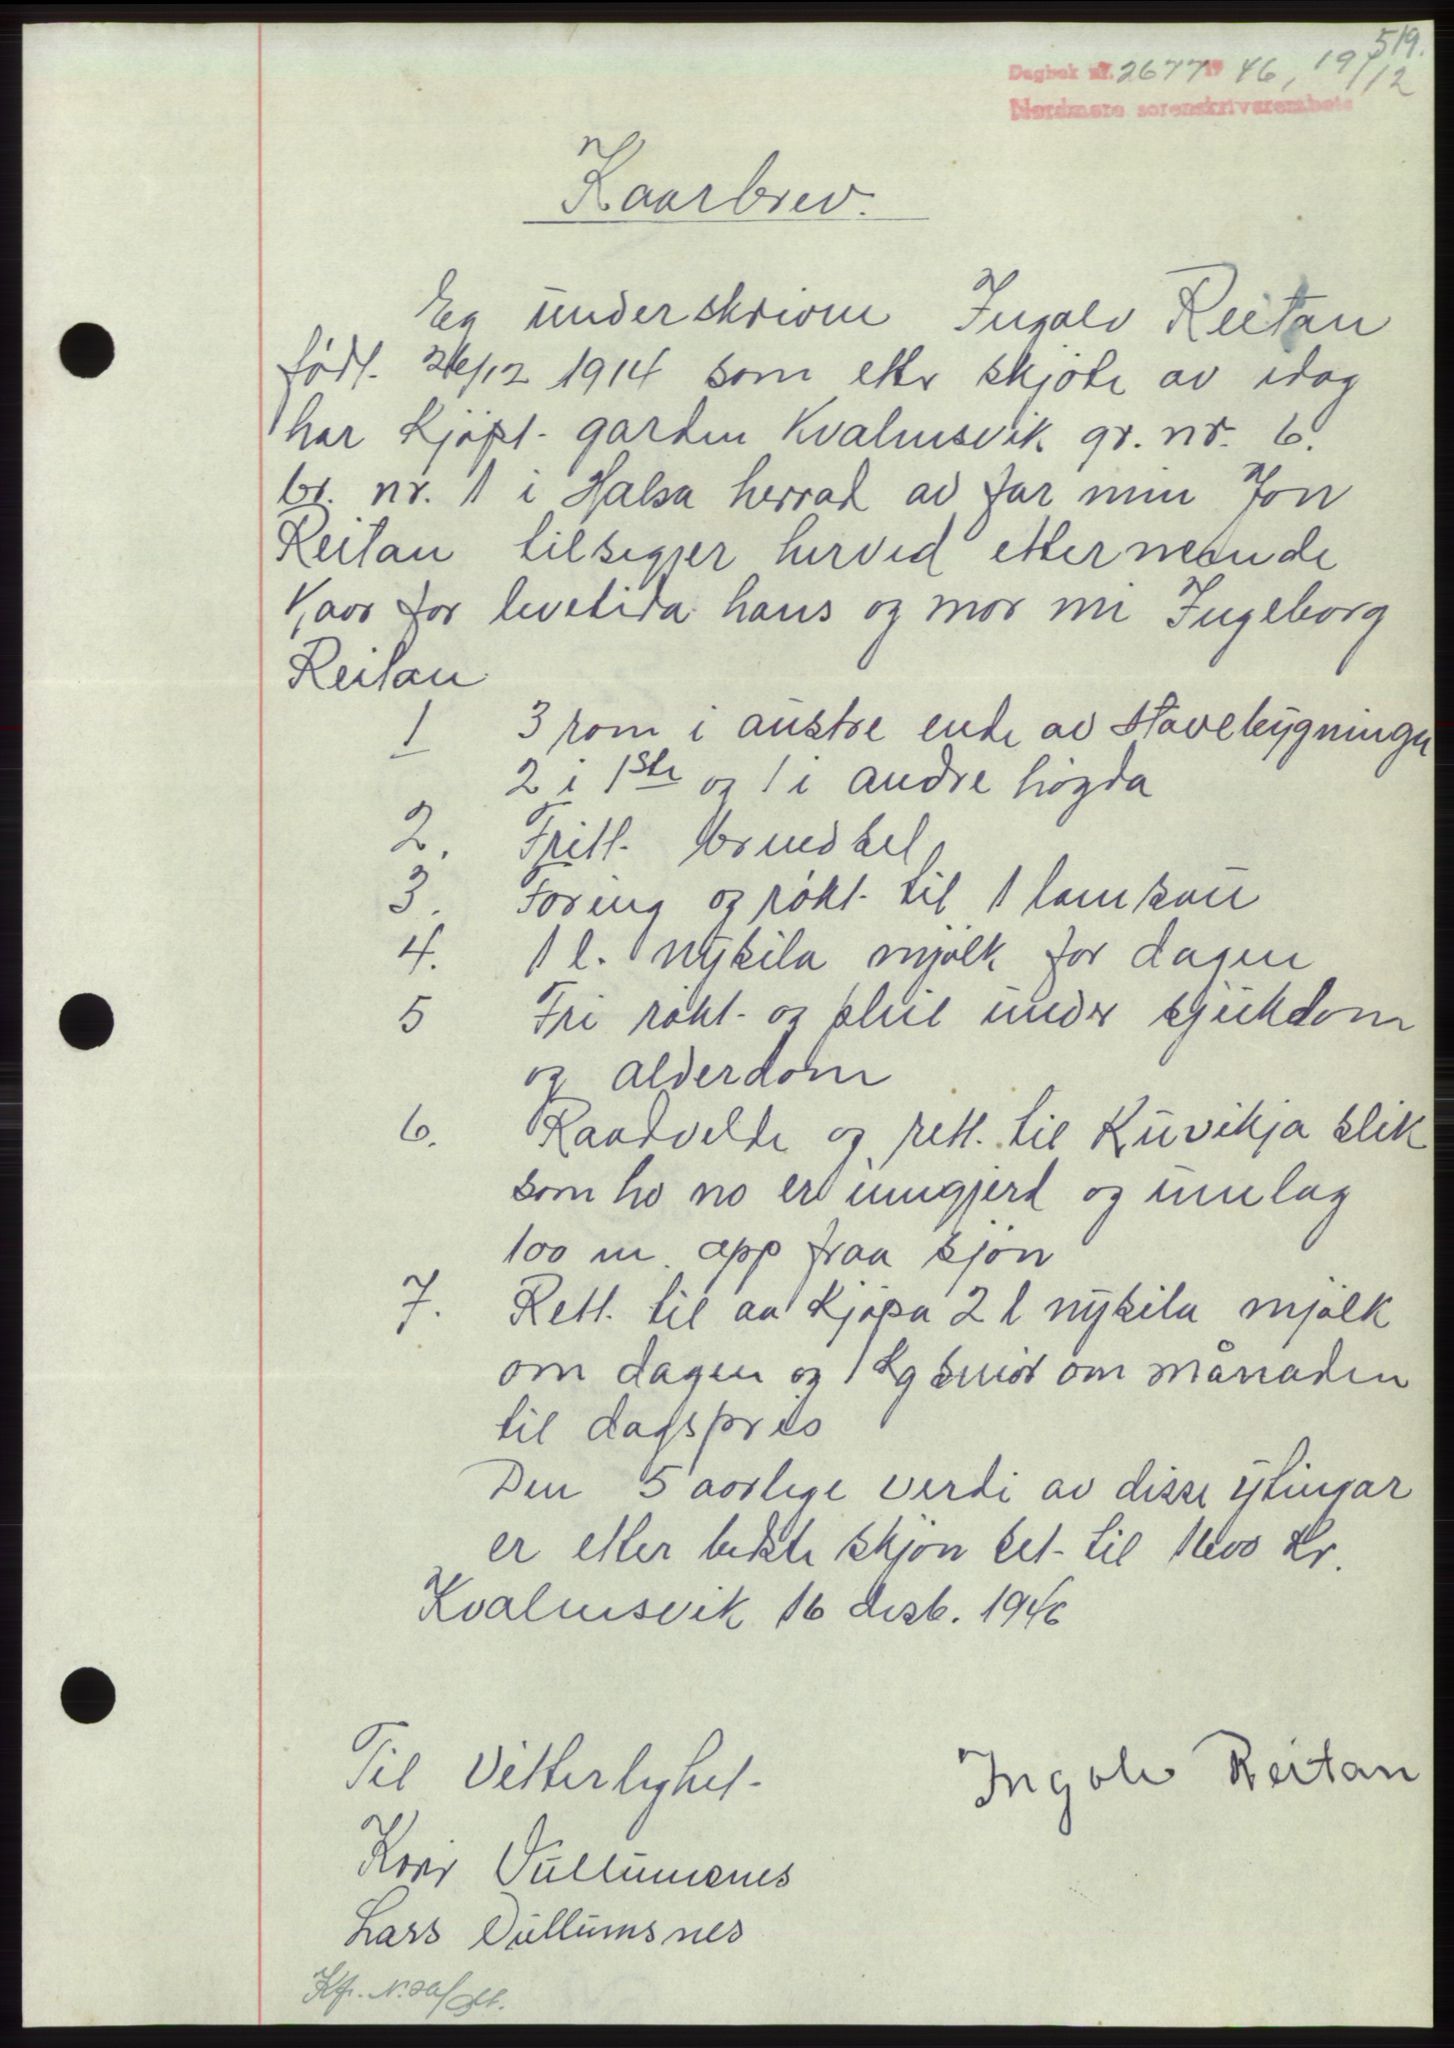 519.
Dagbok nr. 2677 19 46, 19/12
Nordmøre sorenskriverembete
Kaarbrev.
Eg underskrivne Ingolv Reitan
født 26/12 1914 som etter skjøte av idag
har kjøpt garden Kvalmsvik gr. nr. 6.
br. nr. 1 i Halsa herrad av far min Jon
Reitan tilsegjer herved etternemnde
kaar for levetida hans og mor mi Ingeborg
Reitan
1 3 rom i austre ende av stovebygningen
2 i 1ste og 1 i andre høgda
2. Fritt brendsel
3. Foring og røkt til 1 lamsau
4. 1 l. nysila mjølk for dagen
5 Fri røkt og pleie under sjukdom
og alderdom
6. Raadvelde og rett til Kuvikja slik
som ho no er inngjerd og umlag
100 m. opp fraa sjøn
7. Rett til aa kjøpa 2 l nysila mjølk
om dagen og 1 kg smør om månaden
til dagspris
Den 5 aarlege verdi av disse ytingar
er etter beste skjøn set til 1600 kr.
Kvalmsvik 16 desb. 1946
Til Vitterlighet
Ingolv Reitan
Vullumsnes
Lars Vullumsnes
Kfr.